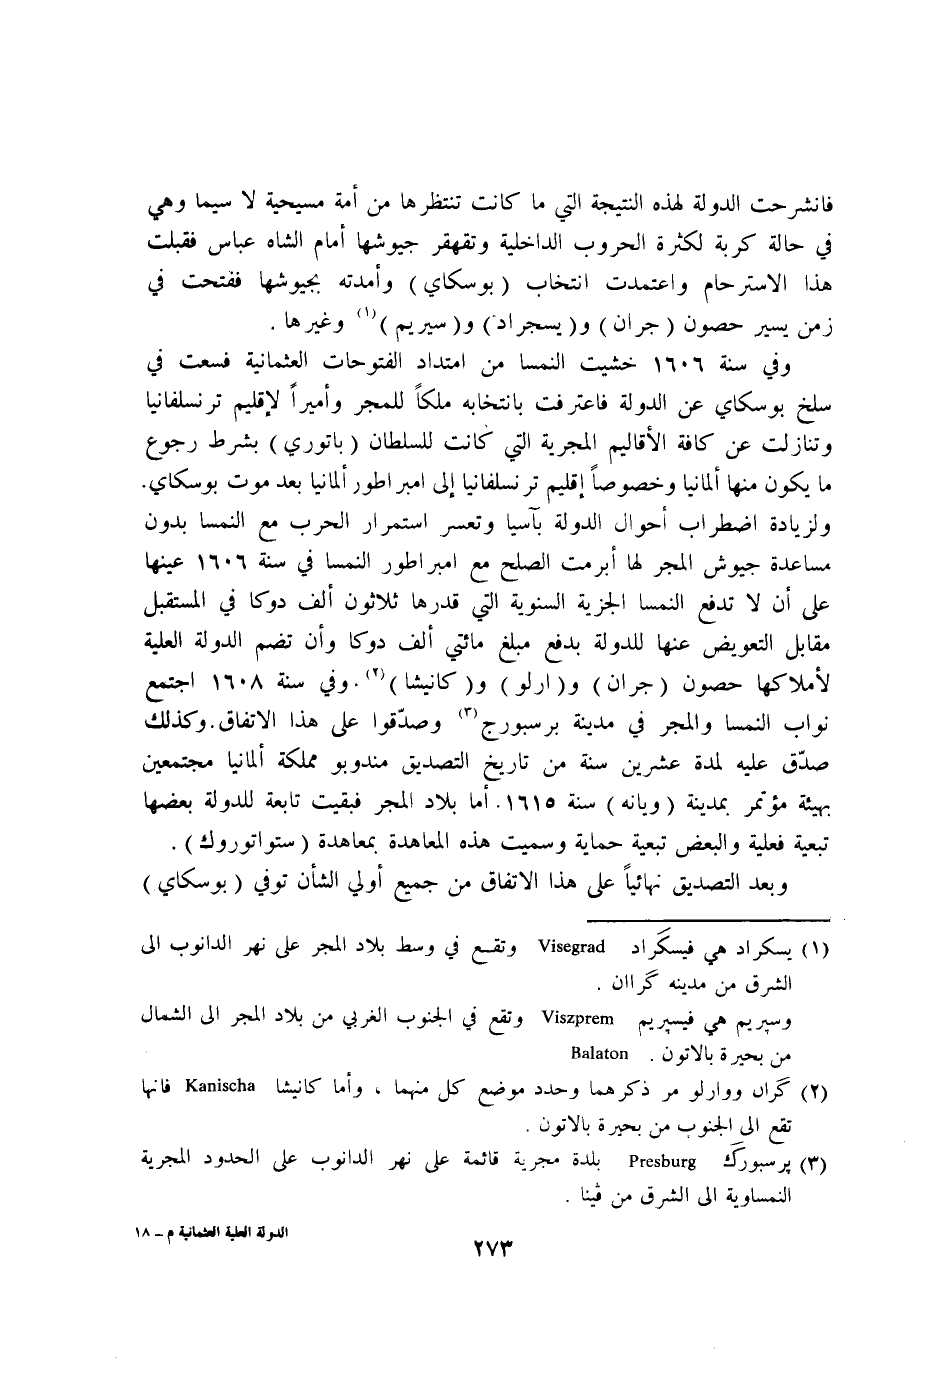 فانشرحت الدولة لهذه النتيجة التي ما كانت تنتظرها من أمة مسيحية لا سيما وهي
في حالة كربة لكثرة الحروب الداخلية وتقهقر جيوشها أمام الشاه عباس فقبلت
هذا الاسترحام واعتمدت انتخاب (بوسكاي) وأمدته بجيوشها ففتحت في
زمن يسير حصون (جران) و(يسجراد) و(سيريم)(١) وغيرها .
وفي سنة ١٦٠٦ خشيت النمسا من امتداد الفتوحات العثمانية فسعت في
سلخ بوسكاي عن الدولة فاعترفت بانتخابه ملكاً للمجر وأميراً لإقليم ترنسلفانيا
وتنازلت عن كافة الأقاليم المجرية التي كانت للسلطان (باتوري) بشرط رجوع
ما يكون منها ألمانيا وخصوصاً إقليم ترنسلفانيا إلى امبراطور ألمانيا بعد موت بوسكاي.
ولزيادة اضطراب أحوال الدولة بآسيا وتعسر استمرار الحرب مع النمسا بدون
مساعدة جيوش المجر لها أبرمت الصلح مع امبراطور النمسا في سنة ١٦٠٦ عينها
على أن لا تدفع النمسا الجزية السنوية التي قدرها ثلاثون ألف دوكا في المستقبل
مقابل التعويض عنها للدولة بدفع مبلغ مائتي ألف دوكا وأن تضم الدولة العلية
لأملاكها حصون (جران) و(ارلو) و(كانيشا)(٢). وفي سنة ١٦٠٨ اجتمع
نواب النمسا والمجر في مدينة برسبورج(٣) وصدّقوا على هذا الاتفاق. وكذلك
صدّق عليه لمدة عشرين سنة من تاريخ التصديق مندوبو مملكة ألمانيا مجتمعين
بهيئة مؤتمر بمدينة (ويانه) سنة ١٦١٥. أما بلاد المجر فبقيت تابعة للدولة بعضها
تبعية فعلية والبعض تبعية حماية وسميت هذه المعاهدة بمعاهدة (ستواتوروك) .
وبعد التصديق نهائياً على هذا الاتفاق من جميع أولي الشأن توفي (بوسكاي)
(١) يسكراد هي فيسگراد Visegrad وتقع في وسط بلاد المجر على نهر الدانوب الى
الشرق من مدينه گراان .
وسپريم هي فيسپريم Viszprem وتقع في الجنوب الغربي من بلاد المجر الى الشمال
من بحيرة بالاتون . Balaton
(٢) گران ووارلو مر ذكرهما وحدد موضع كل منهما ، وأما كانيشا Kanischa فانها
تقع الى الجنوب من بحيرة بالاتون .
(٣) پرسبورگ Presburg بلدة مجرية قائمة على نهر الدانوب على الحدود المجرية
النمساوية الى الشرق من ڤينا .
الدولة العلية العثمانية م - ١٨
٢٧٣